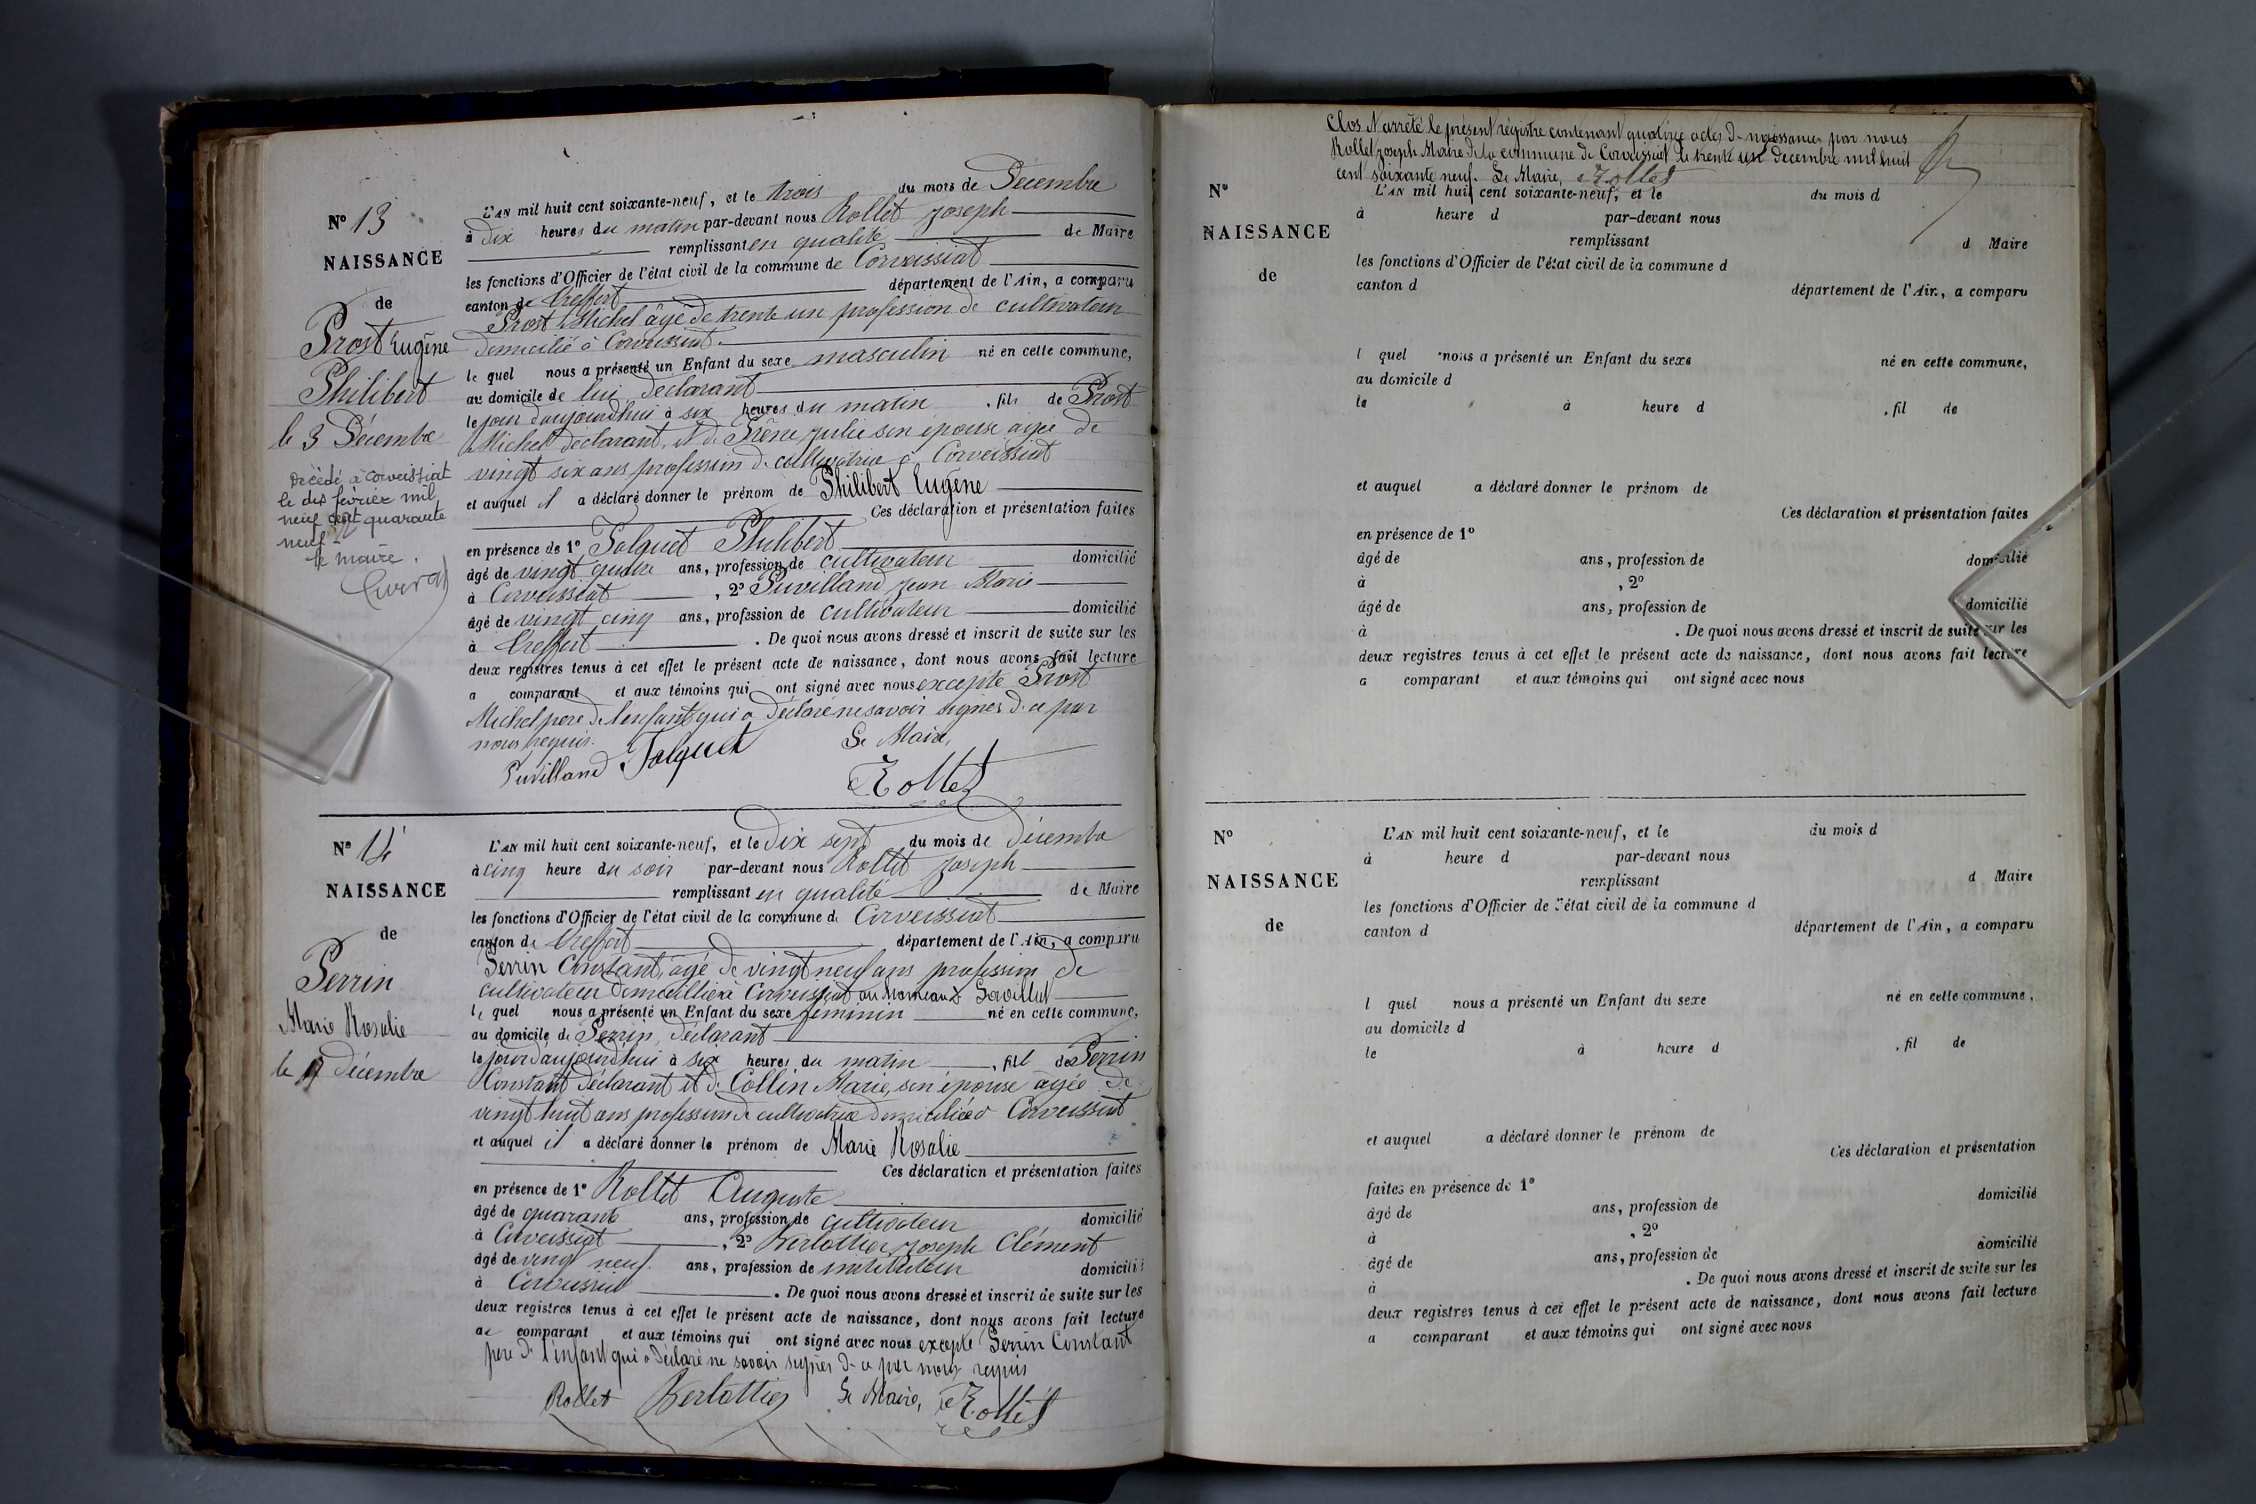 Nº 13
NAISSANCE
de
Prost Eugène
Philibert
le 3 Décembre
Décédé à Corveissiat
le dix février mil
neuf cent quarante
neuf
le maire.
L'AN mil huit cent soixante-neuf, et le trois du mois de Décembre
à Dix heures du matin par-devant nous Rollet Joseph
remplissant en qualité de Maire
les fonctions d'Officier de l'état civil de la commune de Corveissiat
canton de Treffort département de l'Ain, a comparu
Prost Michel âgé de trente un profession de cultivateur
domicilié à Corveissiat.
le quel nous a présenté un Enfant du sexe masculin né en cette commune,
au domicile de lui déclarant
le jour d'aujourdhui à six heures du matin , fils de Prost
Michel déclarant, et de Frêne Julie son épouse agée de
vingt six ans profession de cultivatrice à Corveissiat
et auquel il a déclaré donner le prénom de Philibert Eugène
Ces déclaration et présentation faites
en présence de 1º Jolquet Philibert
âgé de vingt quatre ans, profession de cultivateur domicilié
à Corveissiat , 2º Puvilland Jean Marie
âgé de vingt cinq ans, profession de cultivateur domicilié
à Treffort . De quoi nous avons dressé et inscrit de suite sur les
deux registres tenus à cet effet le présent acte de naissance, dont nous avons fait lecture
a comparant et aux témoins qui ont signé avec nous excepté Prost
Michel pere de l'enfant qui a déclaré ne savoir signer de ce par
nous requis.
Le Maire,
Puvilland Jolquet Rollet
Nº 14
NAISSANCE
de
Perrin
Marie Rosalie
le 17 Décembre
L'AN mil huit cent soixante-neuf, et le Dix sept du mois de Décembre
à cinq heure du soir par-devant nous Rollet Joseph
remplissant en qualité de Maire
les fonctions d'Officier de l'état civil de la commune de Corveissiat
canton de Treffort département de l'Ain, a comparu
Perrin Constant, âgé de vingt neuf ans profession de
cultivateur domicillié à Corveissiat au hameau
le quel nous a présenté un Enfant du sexe féminin né en cette commune,
au domicile de Perrin, déclarant
le jour d'aujourd'hui à six heures du matin , fill de Perrin
Constant déclarant et de Collin Marie, son épouse âgée de
vingt huit ans profession de cultivatrice domiciliée à Corveissiat
et auquel il a déclaré donner le prénom de Marie Rosalie
Ces déclaration et présentation faites
en présence de 1º Rollet Auguste
âgé de quarante ans, profession de cultivateur domicilié
à Corveissiat , 2º Kerlottier Joseph Clément
âgé de vingt neuf ans, profession de instituteur domicilié
à Corveissiat . De quoi nous avons dressé et inscrit de suite sur les
deux registres tenus à cet effet le présent acte de naissance, dont nous avons fait lecture
au comparant et aux témoins qui ont signé avec nous excepté Perrin Constant
pere de l'enfant qui a déclaré ne savoir signer de ce par nous requis
Rollet Kerlottier Le Maire, Rollet
Clos et arrêté le présent régistre contenant quatorze actes de naissances par nous
Rollet Joseph Maire de la commune de Corveissiat le trente un decembre mil huit
cent soixante neuf. Le Maire, Rollet
Nº
NAISSANCE
de
L'AN mil huit cent soixante-neuf, et le du mois d
à heure d par-devant nous
remplissant d Maire
les fonctions d'Officier de l'état civil de la commune d
canton d département de l'Ain, a comparu
l quel nous a présenté un Enfant du sexe né en cette commune,
au domicile d
le à heure d , fil de
et auquel a déclaré donner le prénom de
Ces déclaration et présentation faites
en présence de 1º
âgé de ans, profession de domicilié
à , 2º
âgé de ans, profession de domicilié
à . De quoi nous avons dressé et inscrit de suite sur les
deux registres tenus à cet effet le présent acte de naissance, dont nous avons fait lecture
a comparant et aux témoins qui ont signé avec nous
Nº
NAISSANCE
de
L'AN mil huit cent soixante-neuf, et le du mois d
à heure d par-devant nous
remplissant d Maire
les fonctions d'Officier de l'état civil de la commune d
canton d département de l'Ain, a comparu
l quel nous a présenté un Enfant du sexe né en cette commune,
au domicile d
le à heure d , fil de
et auquel a déclaré donner le prénom de
Ces déclaration et présentation
faites en présence de 1º
âgé de ans, profession de domicilié
à , 2º
âgé de ans, profession de domicilié
à . De quoi nous avons dressé et inscrit de suite sur les
deux registres tenus à cet effet le présent acte de naissance, dont nous avons fait lecture
a comparant et aux témoins qui ont signé avec nous